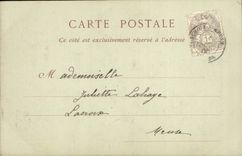 CARTE POSTALE
Ce côté est exclusivement réservé à l'adresse
M ademoiselle
Juliette Lahaye
Lacroix
Meuse